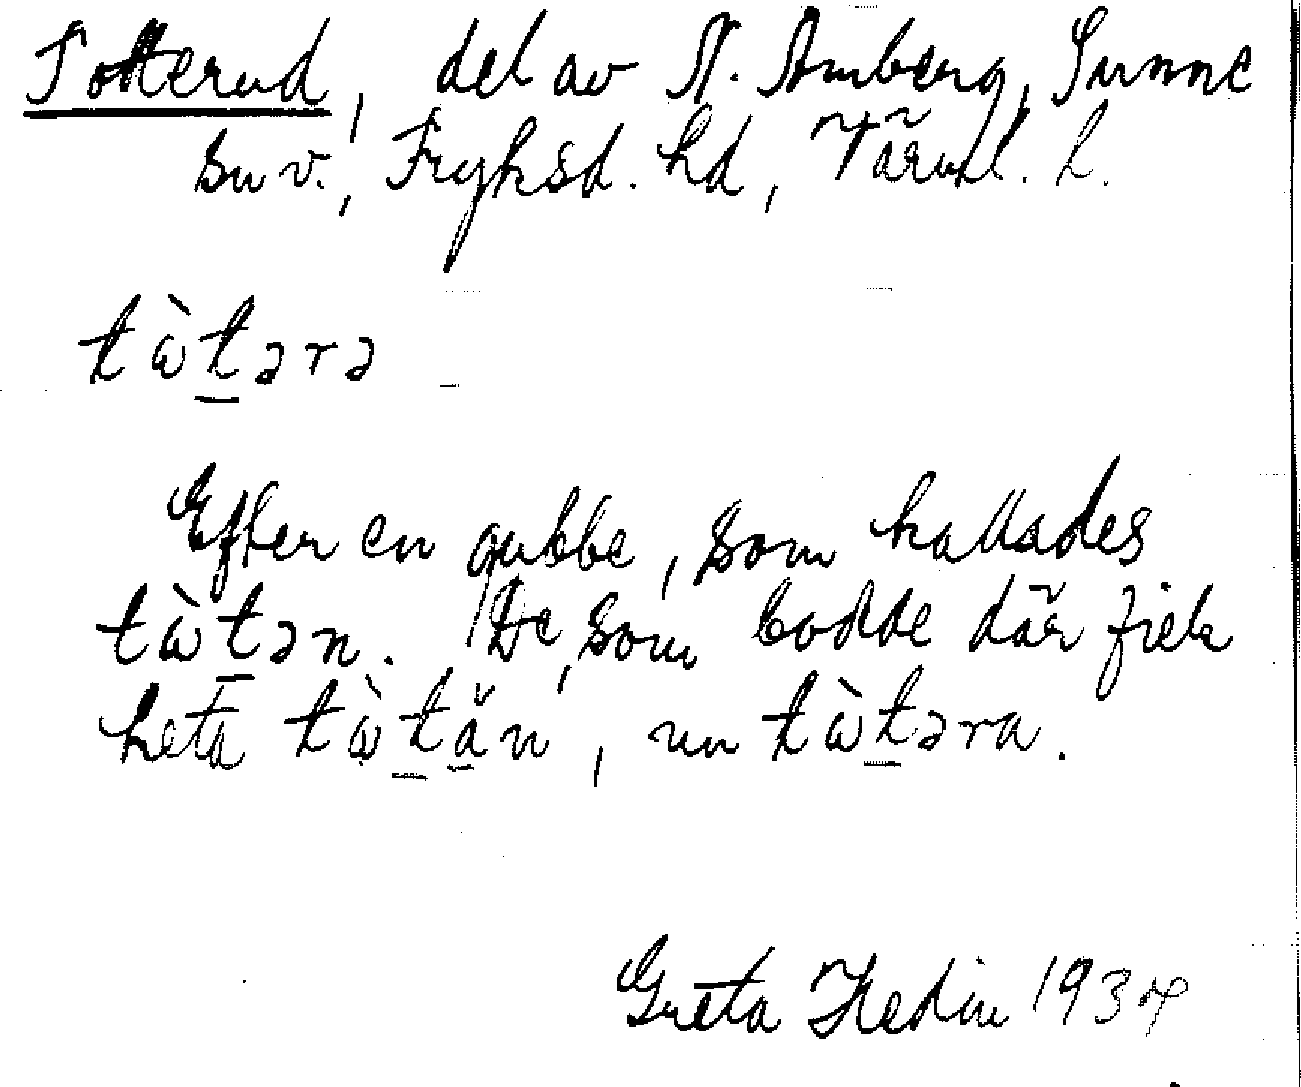 Totterud, del av N. Amberg, Sunne
sn v., Fryksd. hd, Värml. l.
tὼt̲ərə
Efter en gubbe, som kallades
tὼt̲ən. De, som bodde där fick
heta tὼt̲ä̆n, un tὼt̲əra.
Greta Hedin 1934